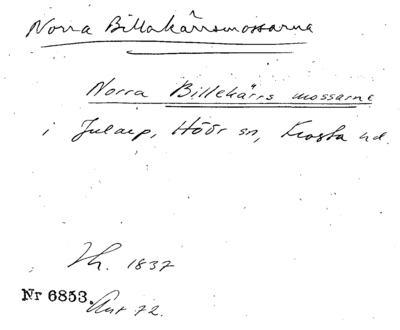 Norra Billakärrsmossarna
Norra Billekärrs mossarne
i Jularp, Höör sn, Frosta hd.
Th. 1837
Nr 6853.
Ant 72.